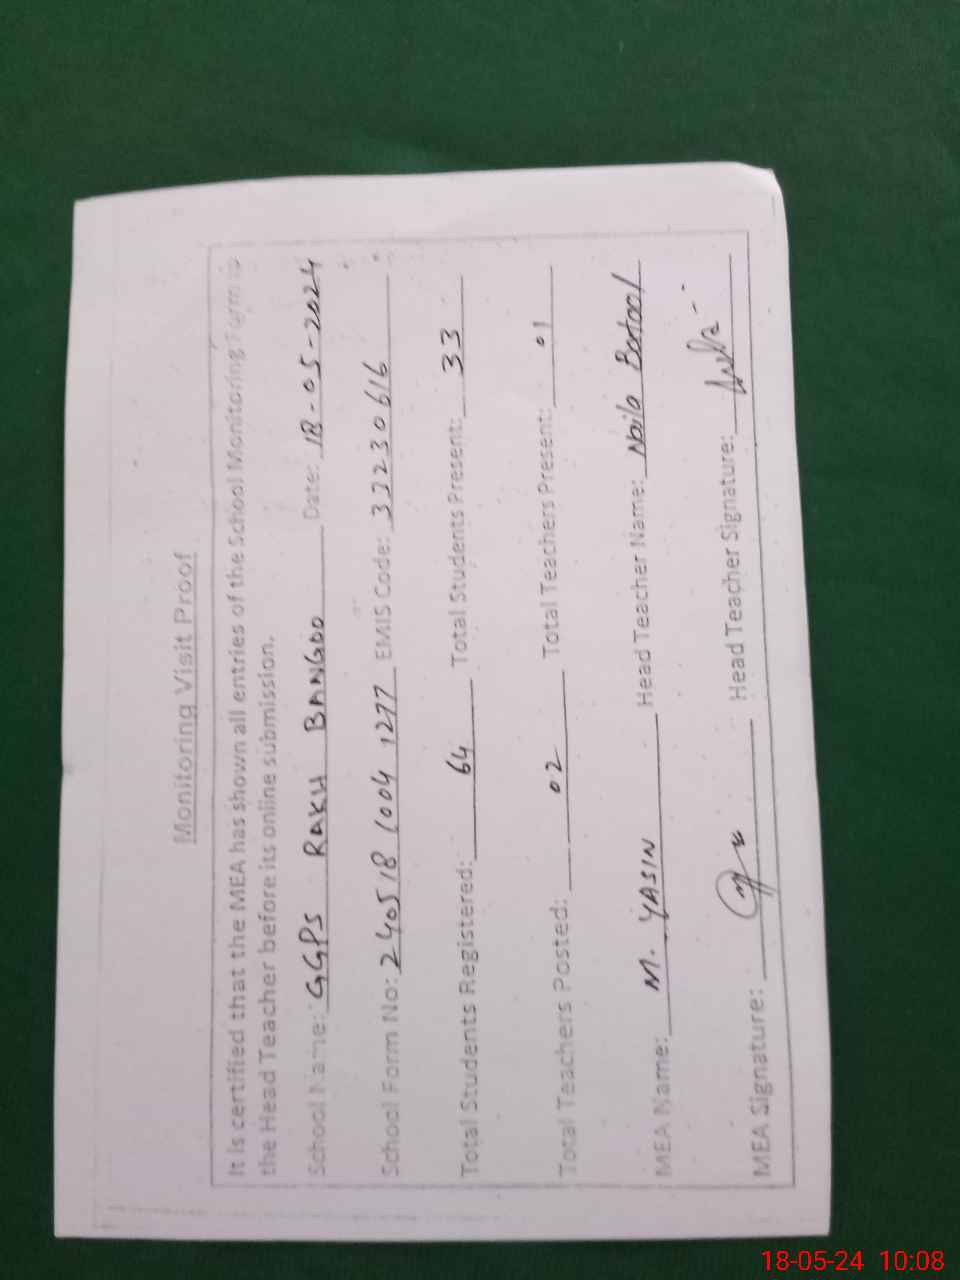 Monitoring Visit Proof
It is certified that the MEA has shown all entries of the School Monitoring Form to
the Head Teacher before its online submission.
School Name: GGPS RAKH BANGOO Date: 18-05-2024
School Form No: 240518 1004 1277 EMIS Code: 33230616
Total Students Registered: 64 Total Students Present: 33
Total Teachers Posted: 02 Total Teachers Present: 01
MEA Name: M. YASIN Head Teacher Name: Naila Batool
MEA Signature: Head Teacher Signature:
18-05-24 10:08